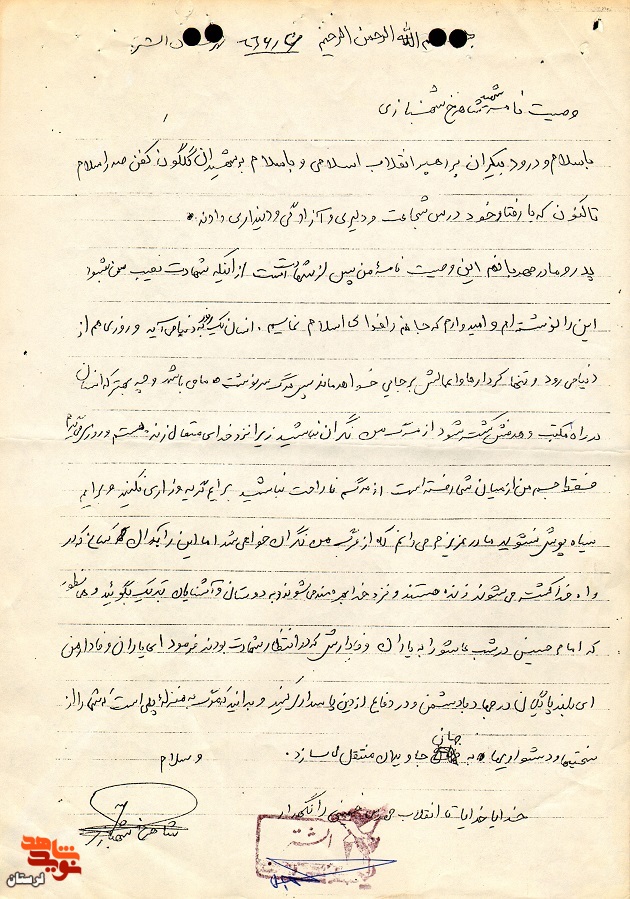 بسم الله الرحمن الرحیم
وصیت نامه شهید شاهرخ شهبازی
با سلام و درود بیکران بر رهبر انقلاب اسلامی و با سلام بر شهیدان گلگون کفن صدر اسلام
تاکنون که با رفتار خود درس شجاعت و دلیری و آزادگی و دینداری دادند.
پدر و مادر مهربانم این وصیت نامهٔ من پس از شهادت است از اینکه شهادت نصیب من بشود
این را نوشته‌ام و امیدوارم که جانم را فدای اسلام نمایم. انسان یک روز به دنیا می آید و روزی هم از
دنیا می رود و تنها کردارها و اعمالش برجای خواهد ماند پس مرگ سرنوشت ما می باشد و چه بهتر که انسان
در راه مکتب و هدفش کشته شود از مرگ من نگران نباشید زیرا نزد خدای متعال زنده هستم و روزی
فقط جسم من از میان شما رفته است از مرگم ناراحت نباشید برایم گریه و زاری نکنید و برایم
سیاه پوش نشوید مادر عزیزم می دانم که از مرگ من نگران خواهی شد اما این را بدان کسانی که در
راه خدا کشته می شوند زنده هستند و نزد خدا بهره مند می شوند و به دوستان و آشنایان تبریک بگوئید و همانطور
که امام حسین در شب عاشورا به یاران وفادارش که در انتظار شهادت بودند فرمود ای یاران وفادار من
ای بلند پایگان در جهاد با دشمن و در دفاع از دین پاسداری کنید و بدانید که مرگ به منزلهٔ پلی است که شما را از
سختیها و دشواریها به جهانی جاویدان منتقل می سازد. و سلام
خدایا خدایا تا انقلاب مهدی خمینی را نگهدار
شاهرخ شهبازی
الشتر
نوید شاهد
لرستان